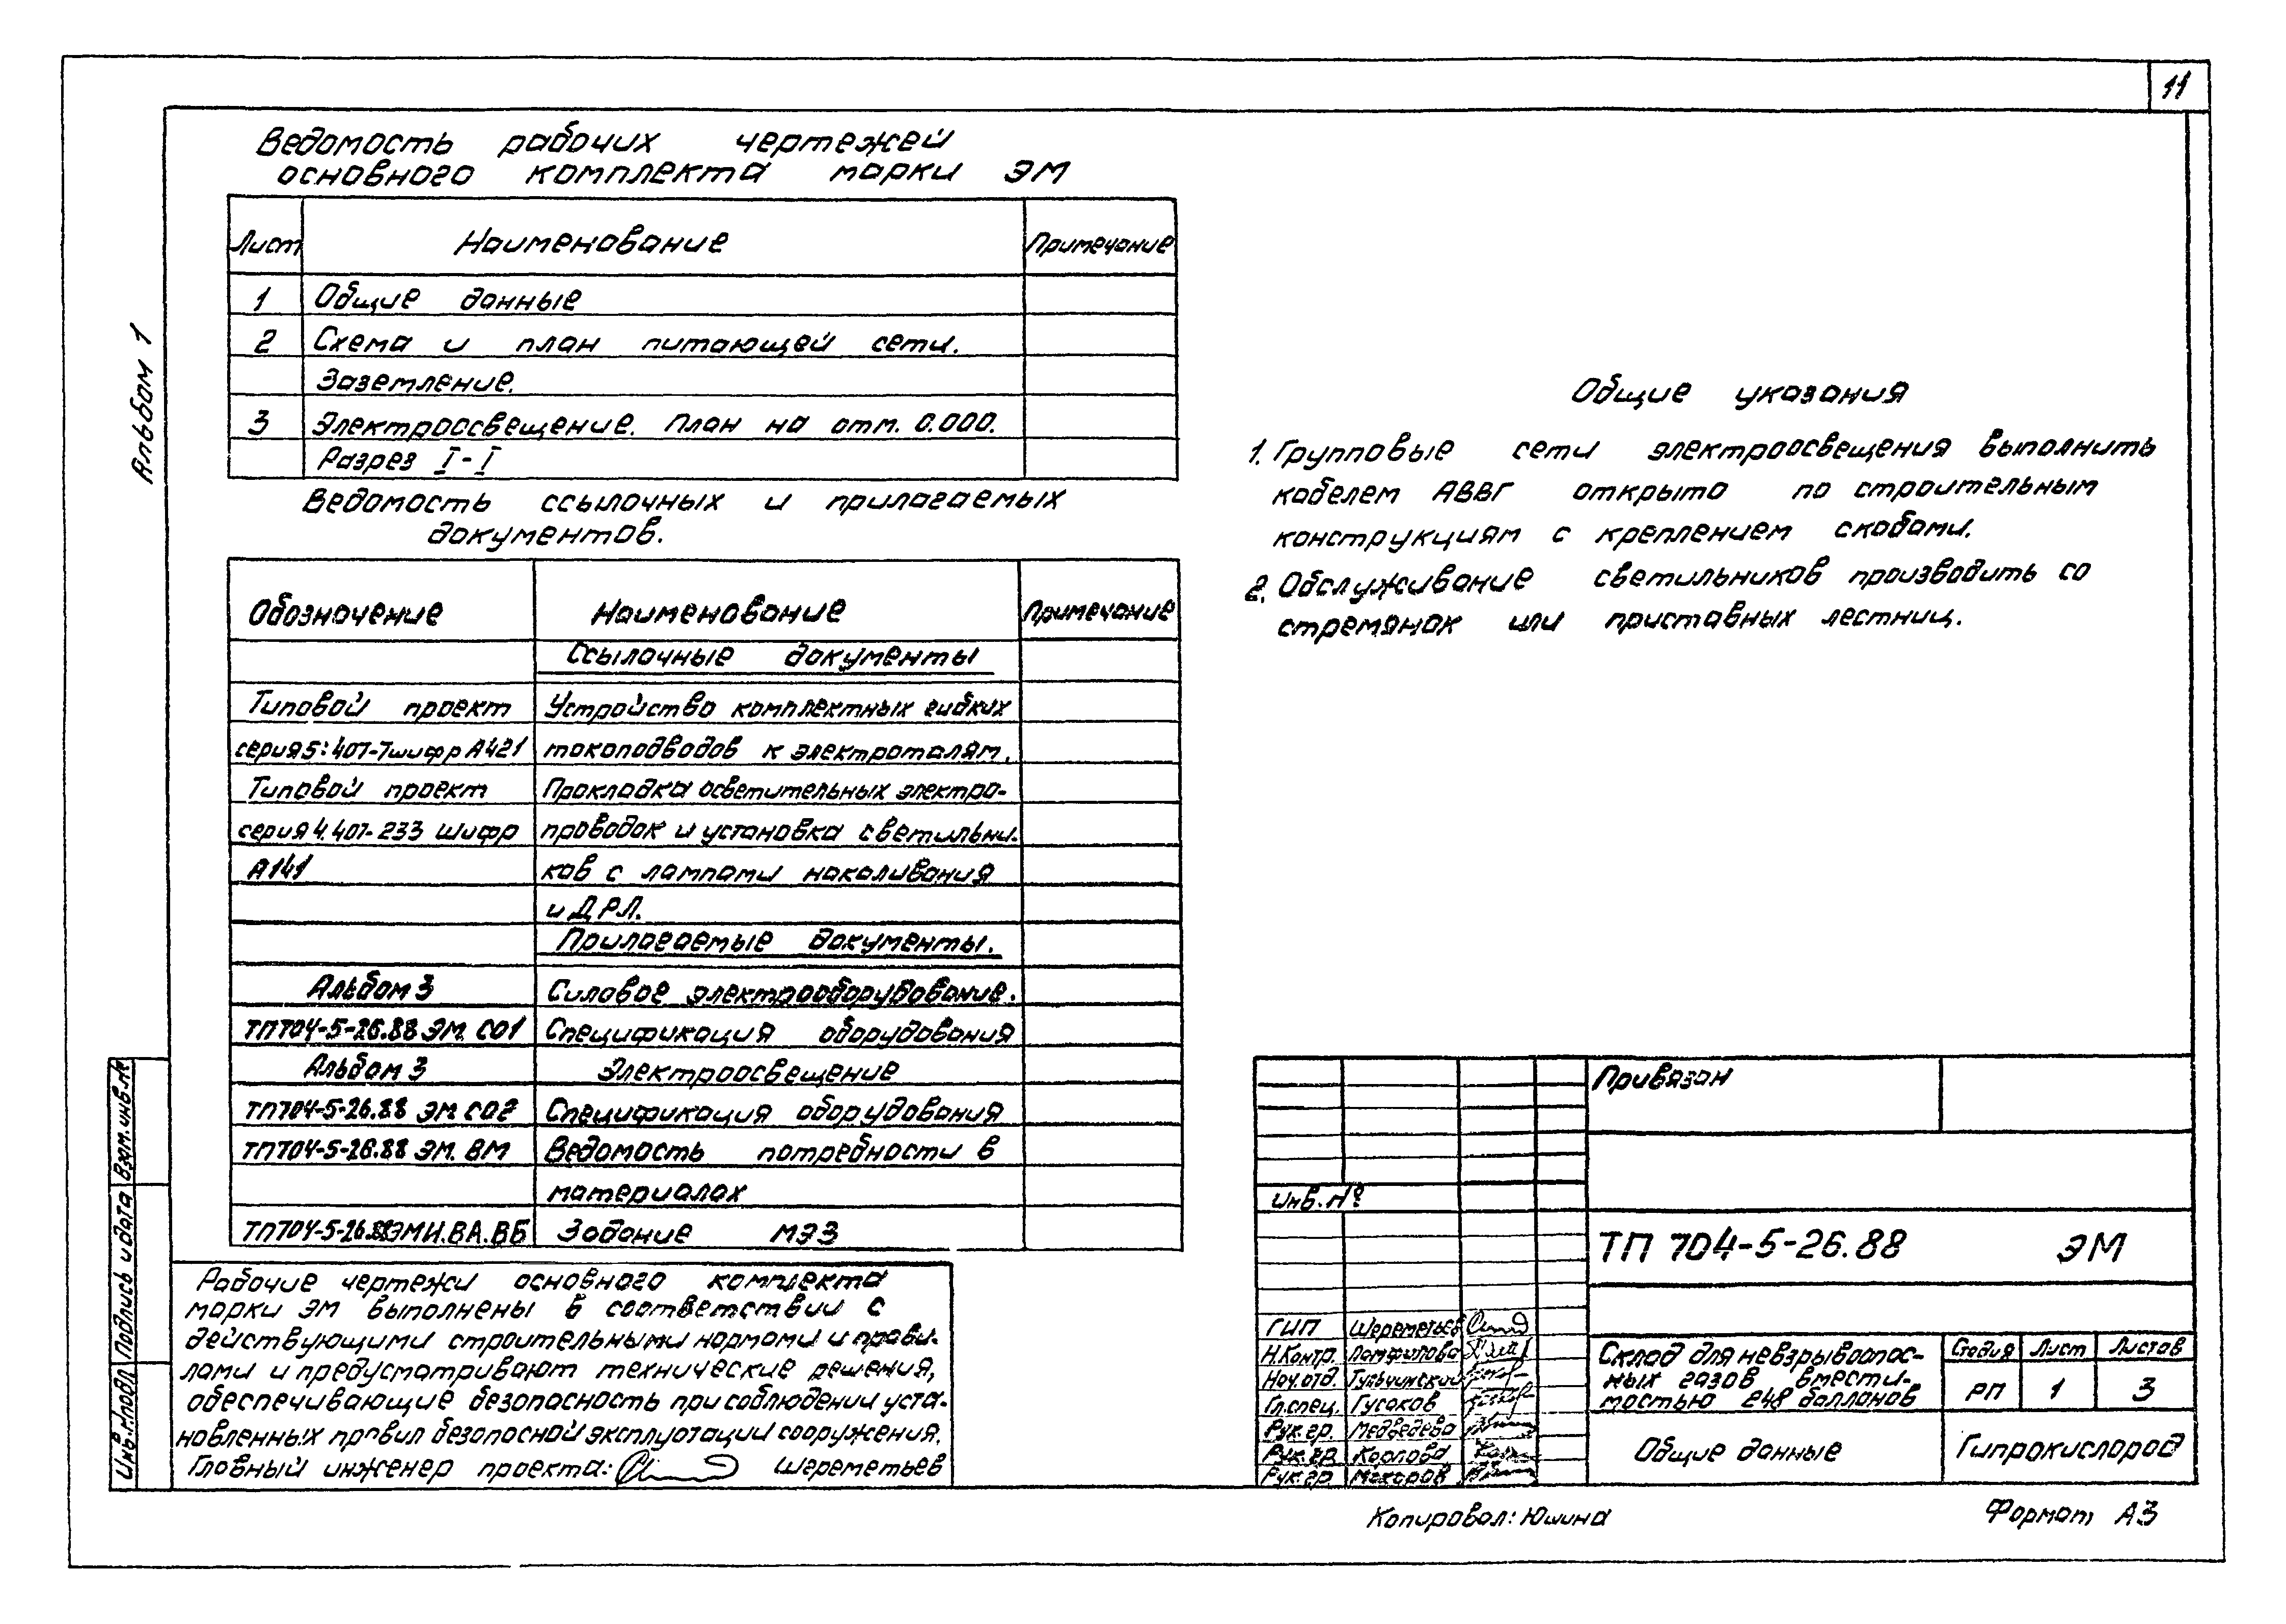 11
Альбом 1
Ведомость рабочих чертежей
основного комплекта марки ЭМ
Лист Наименование Примечание
1 Общие данные
2 Схема и план питающей сети.
Заземление.
3 Электроосвещение. План на отм. 0.000.
Разрез I-I
Ведомость ссылочных и прилагаемых
документов.
Обозначение Наименование Примечание
Ссылочные документы
Типовой проект Устройство комплектных гибких
серия 5.407-7 шифр А421 токоподводов к электроталям.
Типовой проект Прокладка осветительных электро-
серия 4.407-233 шифр проводок и установка светильни-
А141 ков с лампами накаливания
и ДРЛ.
Прилагаемые документы.
Альбом 3 Силовое электрооборудование.
ТП704-5-26.88 ЭМ. СО1 Спецификация оборудования
Альбом 3 Электроосвещение
ТП704-5-26.88 ЭМ СО2 Спецификация оборудования
ТП704-5-26.88 ЭМ. ВМ Ведомость потребности в
материалах
ТП704-5-26.88ЭМИ.ВА.ВБ Задание МЭЗ
Рабочие чертежи основного комплекта
марки ЭМ выполнены в соответствии с
действующими строительными нормами и прави-
лами и предусматривают технические решения,
обеспечивающие безопасность при соблюдении уста-
новленных правил безопасной эксплуотации сооружения.
Главный инженер проекта: Шереметьев
Общие указания
1. Групповые сети электроосвещения выполнить
кабелем АВВГ открыто по строительным
конструкциям с креплением скобами.
2. Обслуживание светильников производить со
стремянок или приставных лестниц.
Взам.инв.№
Подпись и дата
Инв.№подл
Привязан
Инв.№
ТП 704-5-26.88 ЭМ
ГИП Шереметьев
Н.Контр. Памфилова
Нач.отд. Гульчинский
Гл.спец. Гусаков
Рук.гр. Медведева
Рук.гр. Карпова
Рук.гр. Макаров
Склад для невзрывоопас-
ных газов вмести-
мостью 248 баллонов
Стадия Лист Листов
РП 1 3
Общие данные
Гипрокислород
Копировал: Юшина
Формат А3